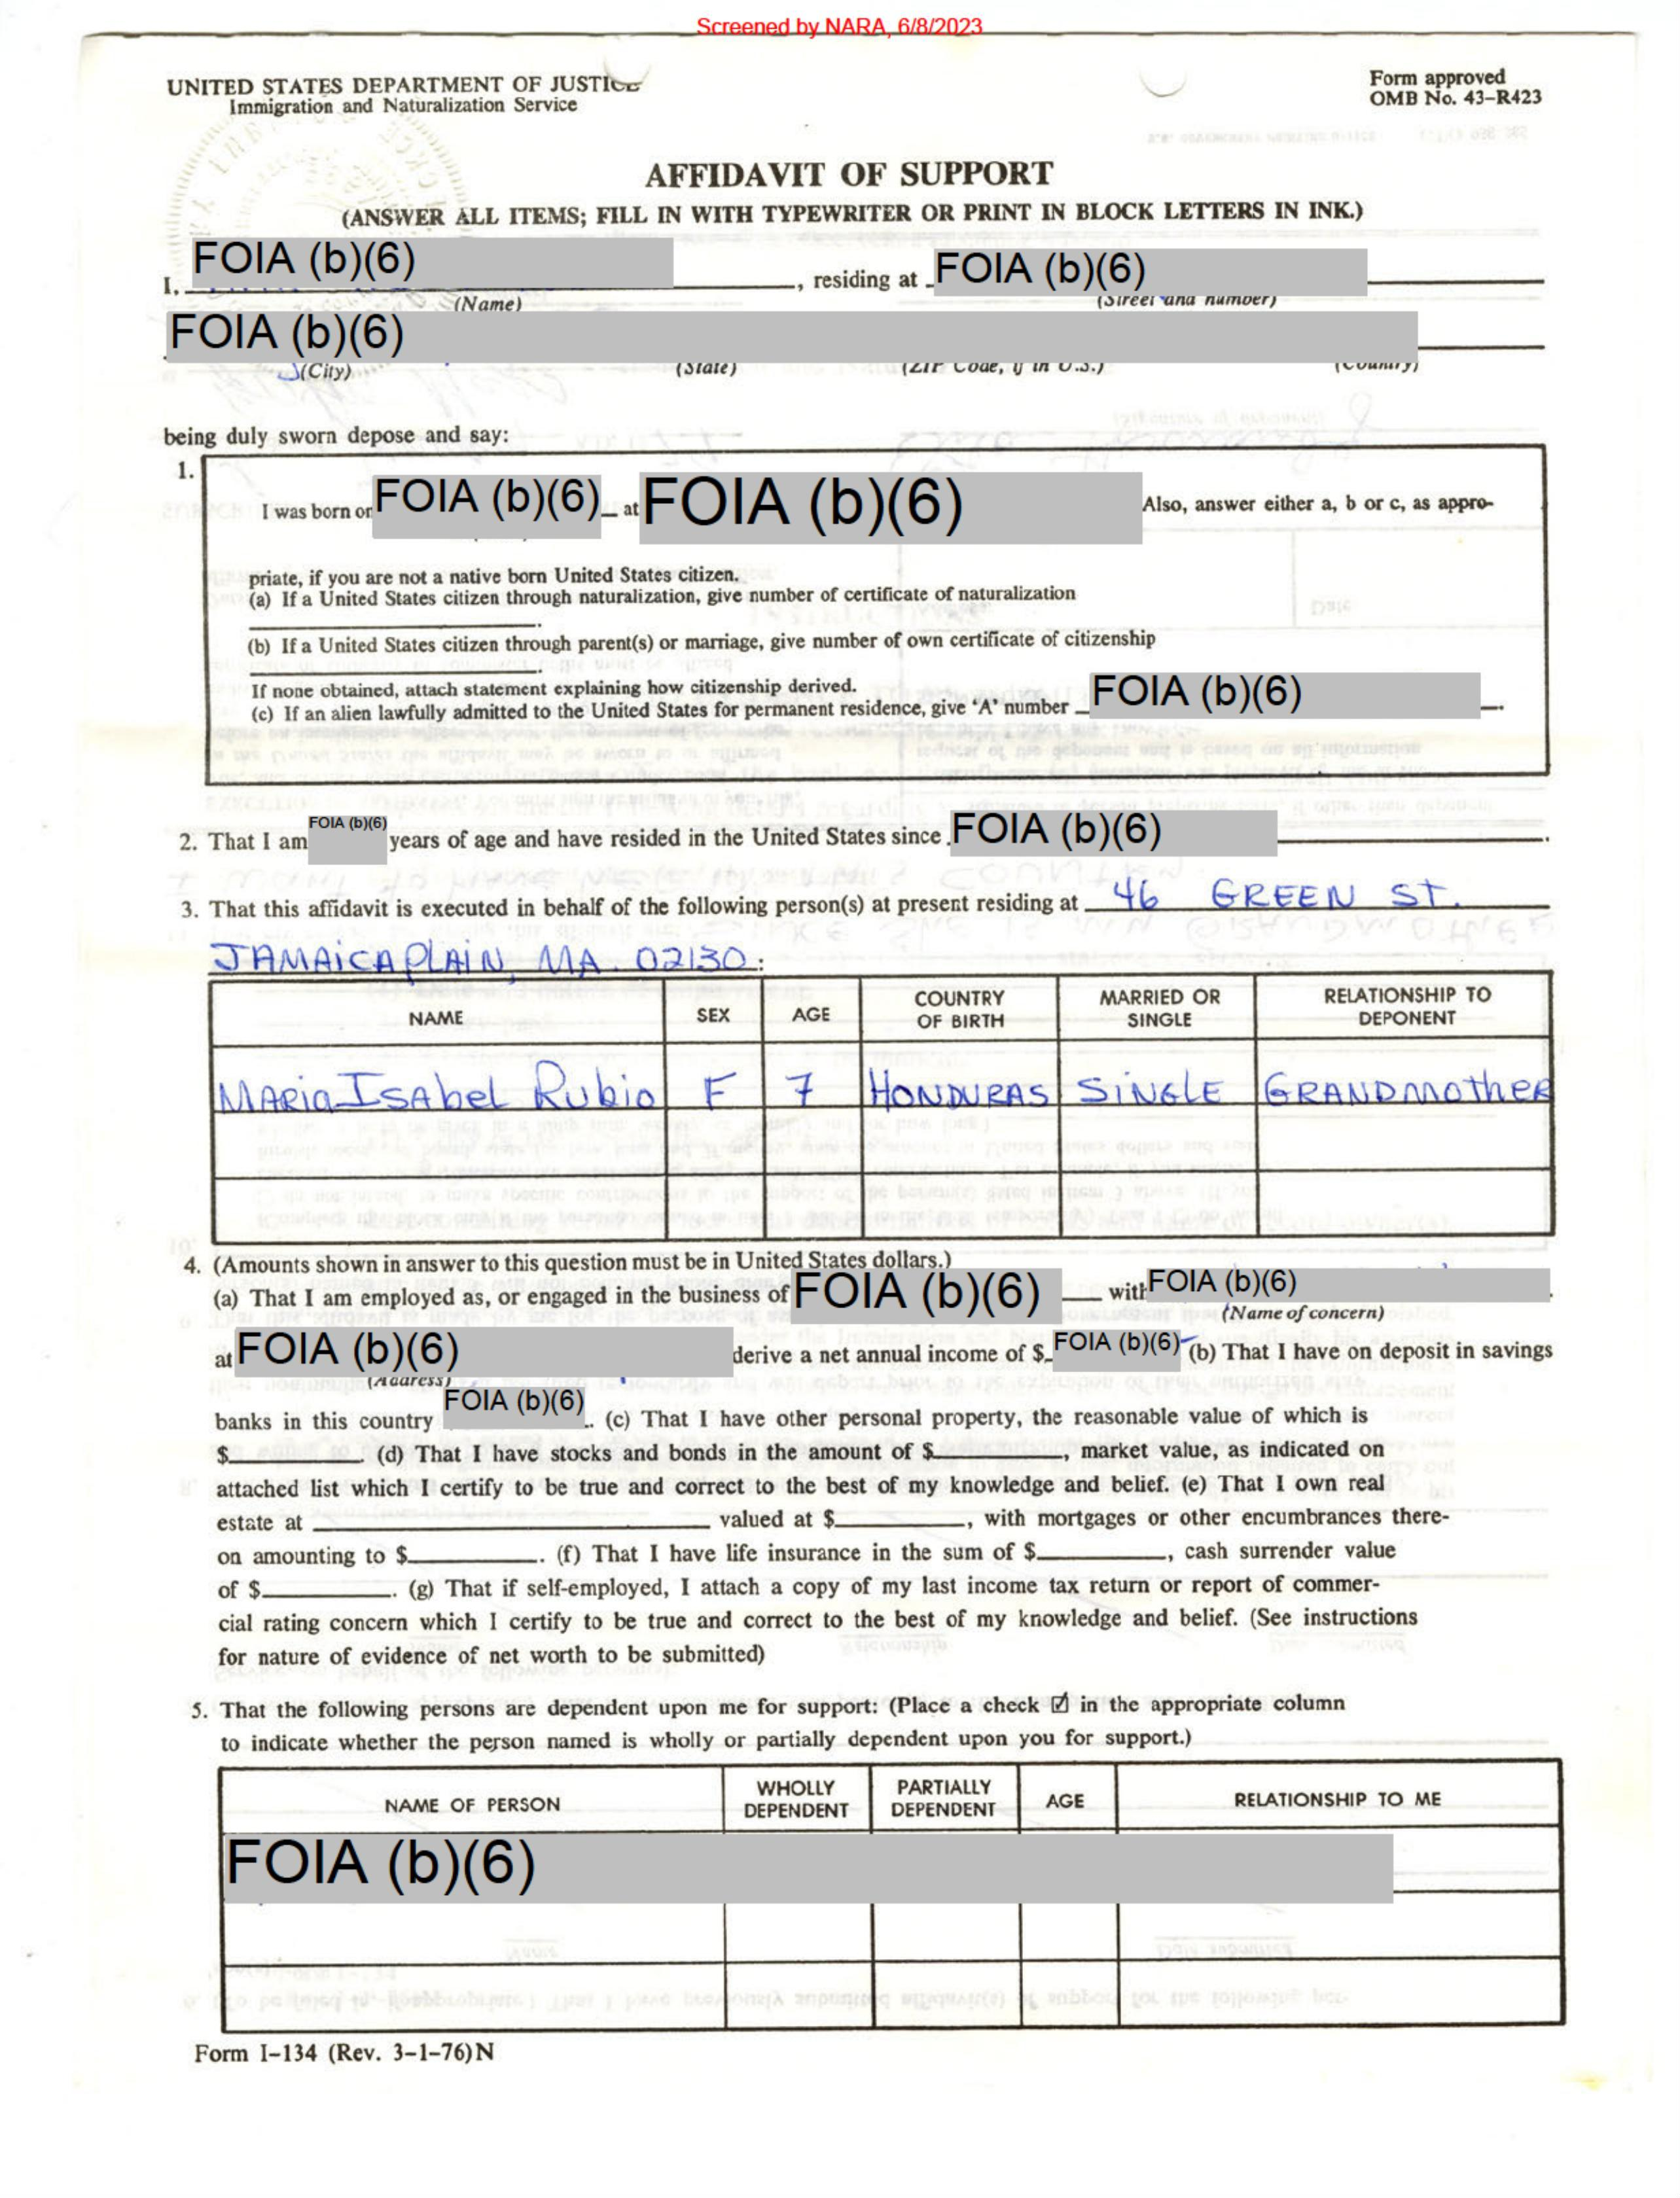 Screened by NARA, 6/8/2023
UNITED STATES DEPARTMENT OF JUSTICE
Immigration and Naturalization Service
Form approved
OMB No. 43-R423
AFFIDAVIT OF SUPPORT
(ANSWER ALL ITEMS; FILL IN WITH TYPEWRITER OR PRINT IN BLOCK LETTERS IN INK.)
I, FOIA (b)(6), residing at FOIA (b)(6)
(Name) (Street and number)
FOIA (b)(6)
(City) (State) (ZIP Code, if in U.S.) (Country)
being duly sworn depose and say:
1.
I was born on FOIA (b)(6) at FOIA (b)(6) Also, answer either a, b or c, as appro-
priate, if you are not a native born United States citizen.
(a) If a United States citizen through naturalization, give number of certificate of naturalization
.
(b) If a United States citizen through parent(s) or marriage, give number of own certificate of citizenship
.
If none obtained, attach statement explaining how citizenship derived.
(c) If an alien lawfully admitted to the United States for permanent residence, give 'A' number FOIA (b)(6).
2. That I am FOIA (b)(6) years of age and have resided in the United States since FOIA (b)(6).
3. That this affidavit is executed in behalf of the following person(s) at present residing at 46 GREEN ST.
JAMAICA PLAIN, MA. 02130:
NAME SEX AGE COUNTRY OF BIRTH MARRIED OR SINGLE RELATIONSHIP TO DEPONENT
MARia ISAbel Rubio F 7 HONDURAS SiNGLE GRANDMotheR
4. (Amounts shown in answer to this question must be in United States dollars.)
(a) That I am employed as, or engaged in the business of FOIA (b)(6) with FOIA (b)(6).
(Name of concern)
at FOIA (b)(6) derive a net annual income of $ FOIA (b)(6) (b) That I have on deposit in savings
(Address)
banks in this country FOIA (b)(6). (c) That I have other personal property, the reasonable value of which is
$________. (d) That I have stocks and bonds in the amount of $________, market value, as indicated on
attached list which I certify to be true and correct to the best of my knowledge and belief. (e) That I own real
estate at ________ valued at $________, with mortgages or other encumbrances there-
on amounting to $________. (f) That I have life insurance in the sum of $________, cash surrender value
of $________. (g) That if self-employed, I attach a copy of my last income tax return or report of commer-
cial rating concern which I certify to be true and correct to the best of my knowledge and belief. (See instructions
for nature of evidence of net worth to be submitted)
5. That the following persons are dependent upon me for support: (Place a check ☑ in the appropriate column
to indicate whether the person named is wholly or partially dependent upon you for support.)
NAME OF PERSON WHOLLY DEPENDENT PARTIALLY DEPENDENT AGE RELATIONSHIP TO ME
FOIA (b)(6)
Form I-134 (Rev. 3-1-76) N